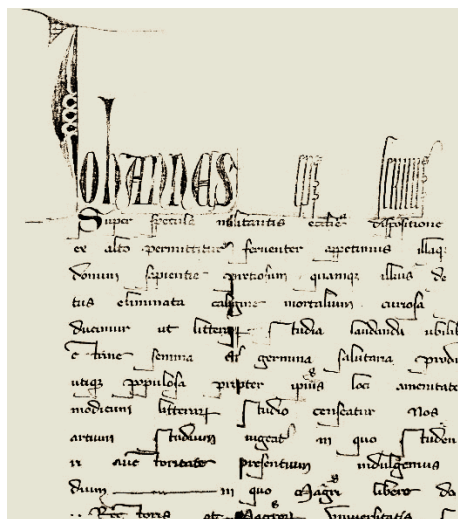 Iohannes
Super specula militantis ecclie dispositione
ex alto permittitur ferventer appetimus illaq
domum sapientie preciosum quamq illius de
tus eliminata caligine mortalium curiosa
ducimur ut litterar studia laudanda
semina et germina salutaria
utiq populosa propter ipius loci amenitate
modicum litterar studio censeatur Nos
artium studium vigeat in quo studen
auctoritate presentium indulgemus
dium in quo Magri libere do
Rectoris et Magror universitatis